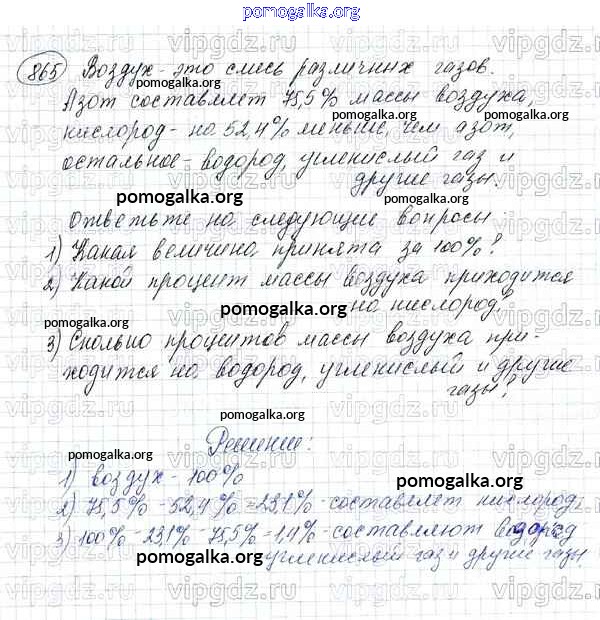 pomogalka.org
865 Воздух - это смесь различных газов.
pomogalka.org
Азот составляет 75,5% массы воздуха,
кислород - на 52,4% меньше, чем азот,
остальное - водород, углекислый газ и
другие газы.
pomogalka.org pomogalka.org
Ответьте на следующие вопросы:
1) Какая величина принята за 100%?
pomogalka.org
2) Какой процент массы воздуха приходится
на кислород?
pomogalka.org
pomogalka.org
3) Сколько процентов массы воздуха при-
ходится на водород, углекислый и другие
газы?
pomogalka.org
pomogalka.org
Решение:
pomogalka.org
1) воздух - 100%
pomogalka.org
2) 75,5% - 52,4% = 23,1% - составляет кислород
3) 100% - 23,1% - 75,5% = 1,4% - составляют водород
pomogalka.org
углекислый газ и другие газы.
vipgdz.ru